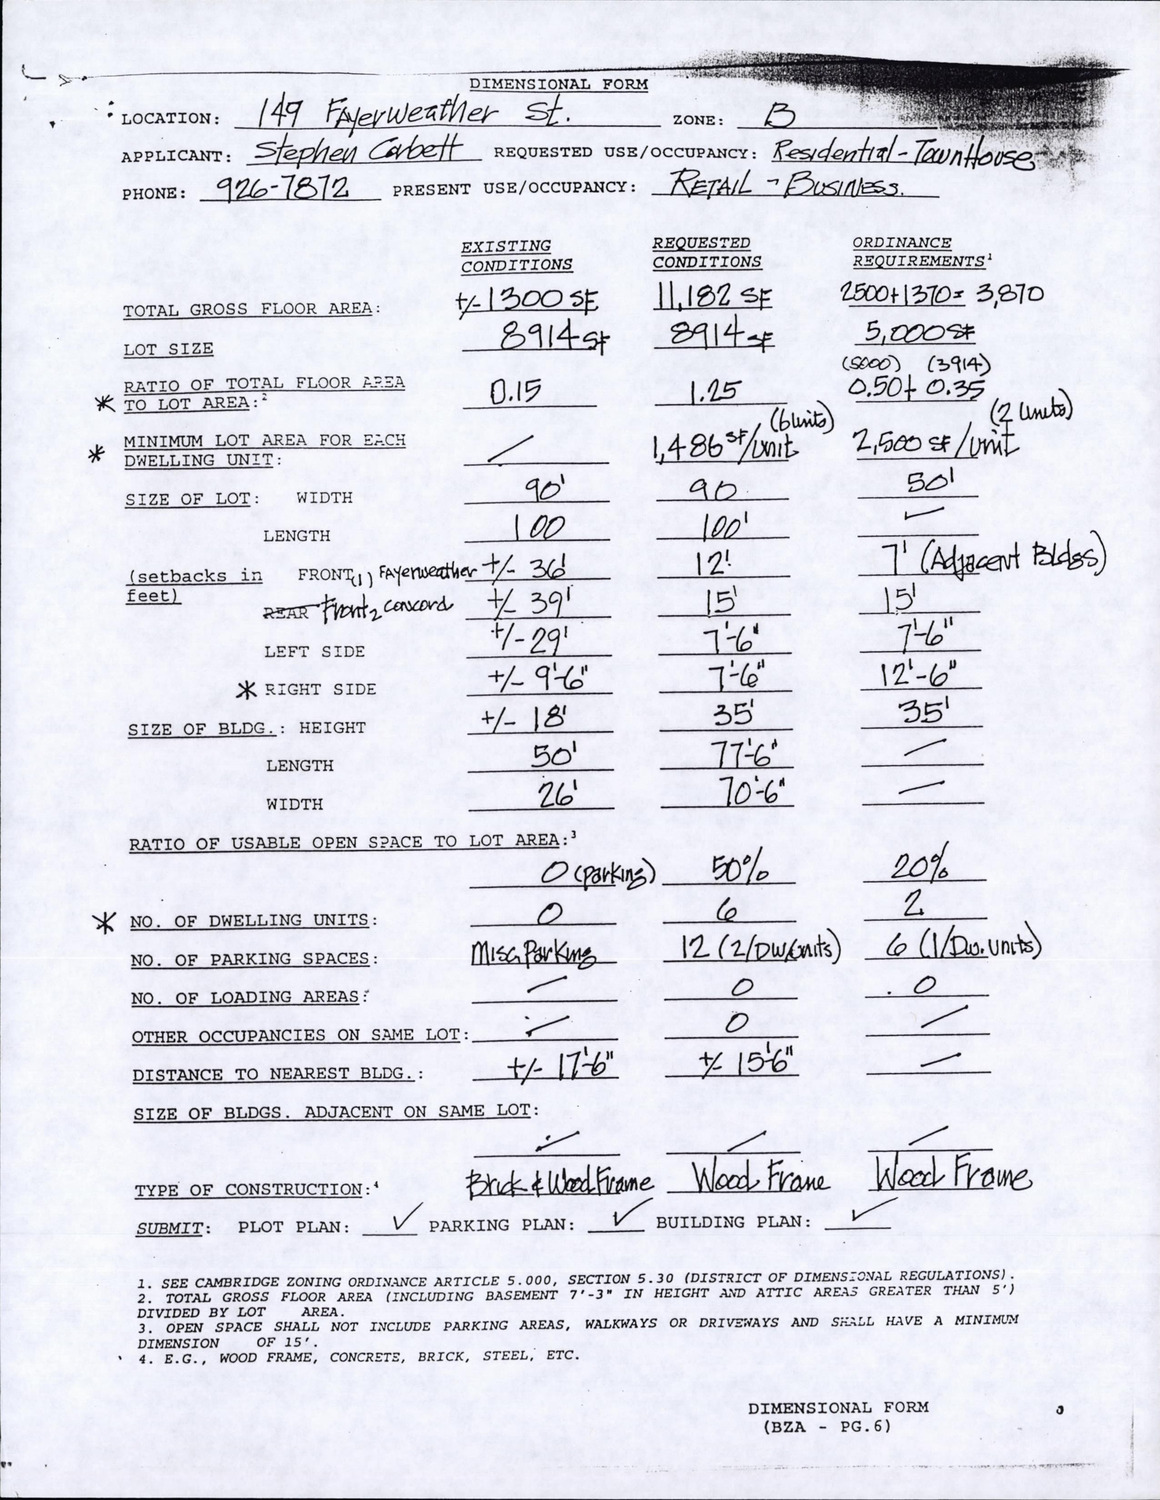 DIMENSIONAL FORM
LOCATION: 149 Fayerweather St. ZONE: B
APPLICANT: Stephen Corbett REQUESTED USE/OCCUPANCY: Residential-TownHouse
PHONE: 926-7872 PRESENT USE/OCCUPANCY: RETAIL - BUSINESS.
EXISTING CONDITIONS REQUESTED CONDITIONS ORDINANCE REQUIREMENTS¹
TOTAL GROSS FLOOR AREA: +/- 1300 SF 11,182 SF 2500+1370= 3,870
LOT SIZE 8914 SF 8914 SF 5,000 SF
(5000) (3914)
RATIO OF TOTAL FLOOR AREA
* TO LOT AREA:² 0.15 1.25 0.50+ 0.35
(6 units) (2 units)
* MINIMUM LOT AREA FOR EACH
DWELLING UNIT: / 1,486 SF/unit 2,500 SF/unit
SIZE OF LOT: WIDTH 90' 90 50'
LENGTH 100 100' /
(setbacks in feet) FRONT(1) Fayerweather +/- 36' 12' 7' (Adjacent Bldgs)
REAR Front2 concord +/- 39' 15' 15'
LEFT SIDE +/- 29' 7'-6" 7'-6"
* RIGHT SIDE +/- 9'-6" 7'-6" 12'-6"
SIZE OF BLDG.: HEIGHT +/- 18' 35' 35'
LENGTH 50' 77'-6" /
WIDTH 26' 70'-6" /
RATIO OF USABLE OPEN SPACE TO LOT AREA:³
0 (parking) 50% 20%
* NO. OF DWELLING UNITS: 0 6 2
NO. OF PARKING SPACES: Misc Parking 12 (2/DW.units) 6 (1/Dw.units)
NO. OF LOADING AREAS: / 0 0
OTHER OCCUPANCIES ON SAME LOT: / 0 /
DISTANCE TO NEAREST BLDG.: +/- 17'-6" +/- 15'-6" /
SIZE OF BLDGS. ADJACENT ON SAME LOT:
/ / /
TYPE OF CONSTRUCTION:⁴ Brick & Wood Frame Wood Frame Wood Frame
SUBMIT: PLOT PLAN: ✓ PARKING PLAN: ✓ BUILDING PLAN: ✓
1. SEE CAMBRIDGE ZONING ORDINANCE ARTICLE 5.000, SECTION 5.30 (DISTRICT OF DIMENSIONAL REGULATIONS).
2. TOTAL GROSS FLOOR AREA (INCLUDING BASEMENT 7'-3" IN HEIGHT AND ATTIC AREAS GREATER THAN 5')
DIVIDED BY LOT AREA.
3. OPEN SPACE SHALL NOT INCLUDE PARKING AREAS, WALKWAYS OR DRIVEWAYS AND SHALL HAVE A MINIMUM
DIMENSION OF 15'.
4. E.G., WOOD FRAME, CONCRETE, BRICK, STEEL, ETC.
DIMENSIONAL FORM
(BZA - PG.6)